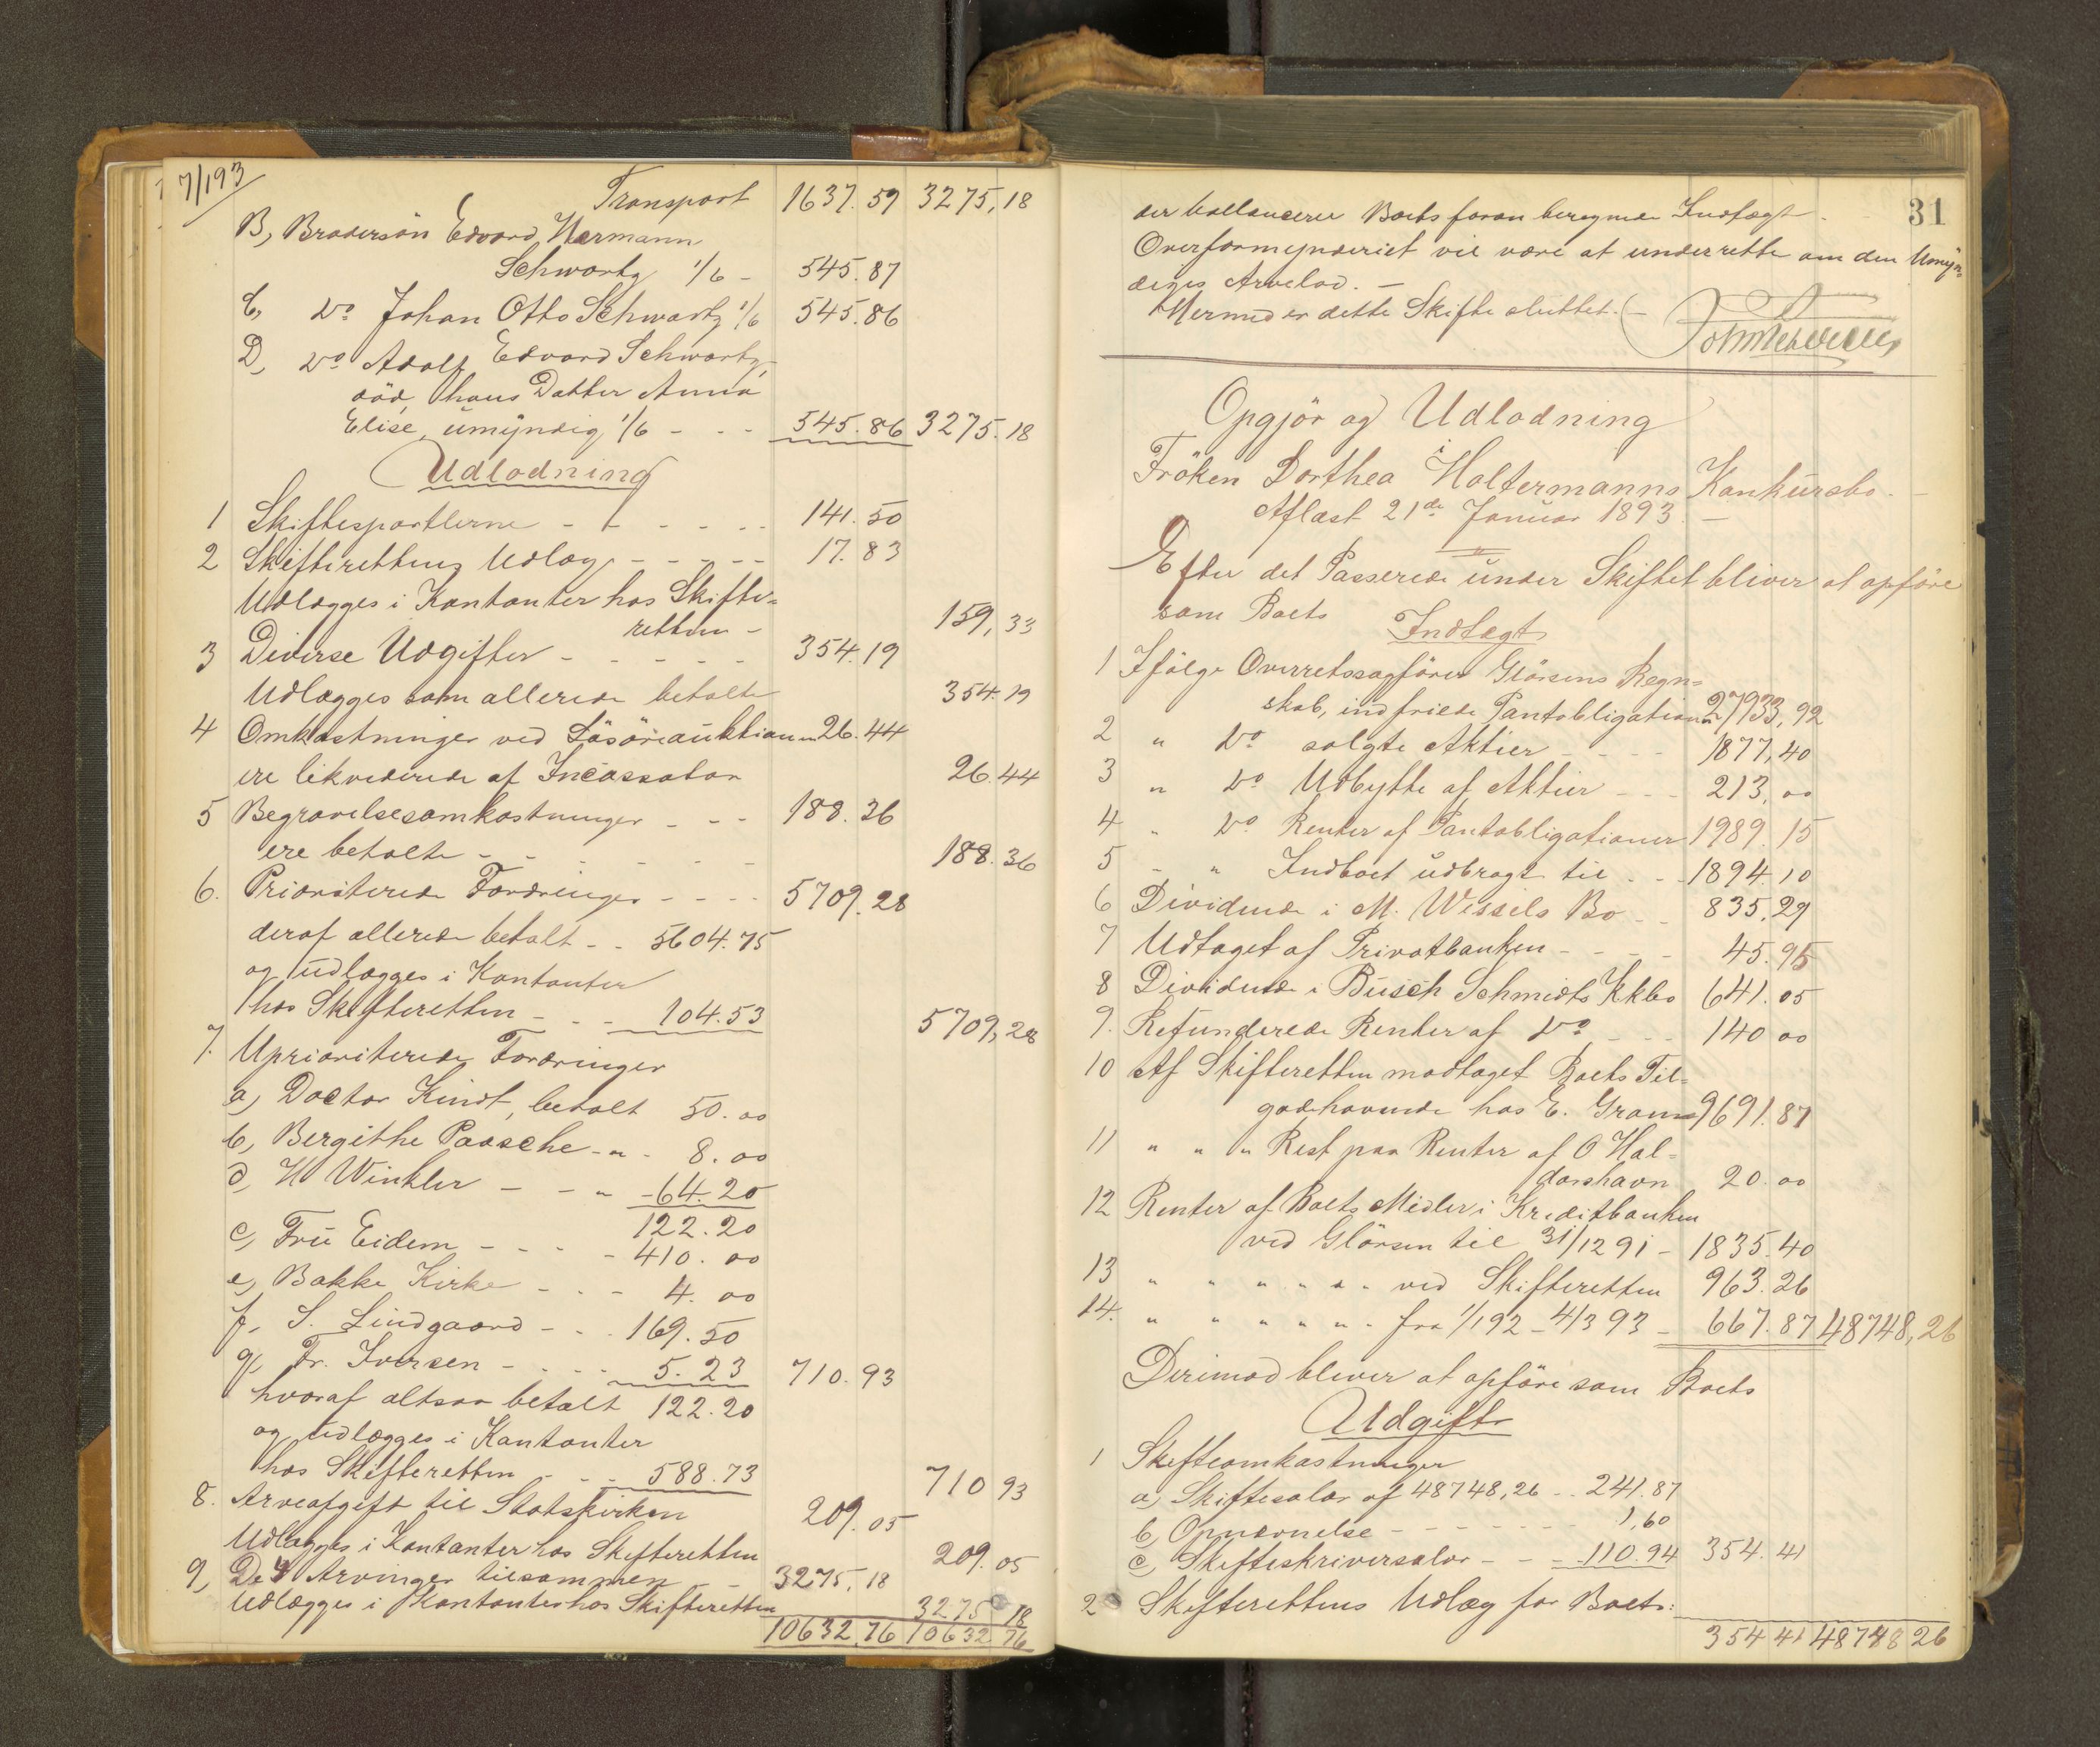 7/193
Transport 1637.59 3275,18
B, Brodersön Edvard Hermann
Schwartz 1/6 - 545.87
C, Do Johan Otto Schwartz 1/6 545.86
D, Do Adolf Edvard Schwartz,
död, hans Datter Anna
Elise, umyndig 1/6 - - - 545.86 3275.18
Udlodning
1 Skiftesportlerne - - - - - 141.50
2 Skifterettens Udlæg - - - - - 17.83
Udlægges i Kontanter hos Skifte=
retten - 159,33
3 Diverse Udgifter - - - - - 354.19
Udlægges som allerede betalte 354.19
4 Omkostninger ved Lösöreauktionen 26.44
ere likviderede af Incassator 26.44
5 Begravelsesomkostninger - - - 188.36
ere betalte - - - - - - 188.36
6. Prioriterede Fordringer - - - - 5709.28
deraf allerede betalt - - 5604.75
og udlægges i Kontanter
hos Skifteretten - - - 104.53 5709,28
7. Uprioriterede Fordringer
a, Doctor Kindt, betalt 50.00
b, Bergithe Paasche - " - 8.00
d, H Winkler - - " - 64.20
122.20
c, Fru Eidem - - - - 410.00
e, Bakke Kirke - - - 4.00
f, S. Lindgaard - - - 169.50
g, Fr. Iversen - - - - 5.23 710.93
hvoraf altsaa betalt 122.20
og udlægges i Kontanter
hos Skifteretten - - - 588.73 710 93
8. Arveafgift til Statskirken 209.05
Udlægges i Kontanter hos Skifteretten 209.05
9, De 4 Arvinger tilsammen - 3275.18
Udlægges i Kontanter hos Skifteretten 3275 18
10632.76 10632 76
31
der ballancerer Boets foran beregnede Indtægt.
Overformynderiet vil være at underrette om den Umyn=
diges Arvelod. -
Hermed er dette Skifte sluttet. -
Opgjör og Udlodning
i
Fröken Dorthea Holtermanns Konkursbo. -
Aflæst 21de Januar 1893. -
Efter det Passerede under Skiftet bliver at opföre
som Boets Indtægt
1 Ifölge Overretssagförer Glörsens Regn=
skab, indfriede Pantobligationer 27933,92
2 " Do solgte Aktier - - - - 1877,40
3 " Do Udbytte af Aktier - - - 213,00
4 " Do Renter af Pantobligationer 1989.15
5 " " Indboet udbragt til - - - 1894.10
6 Dividende i M. Wessels Bo - - 835.29
7 Udtaget af Privatbanken - - - - 45.95
8 Dividende i Busch Schmidts Kkbo 641.05
9. Refunderede Renter af Do - - - 140 00
10 Af Skifteretten modtaget Boets Til=
godehavende hos E. Gram 9691.87
11 " " " Rest paa Renter af O Hal=
dorshavn 20.00
12 Renter af Boets Midler i Kreditbanken
ved Glörsen til 31/12 91 - 1835.40
13 " " " " " " ved Skifteretten 963.26
14. " " " " " - fra 1/1 92 - 4/3 93 - 667.87 48748,26
Derimod bliver at opföre som Boets
Udgift
1 Skifteomkostninger
a, Skiftesalær af 48748,26 - - 241.87
b, Opnævnelse - - - - - - 1,60
c, Skifteskriversalær - - - 110.94 354.41
2 Skifterettens Udlæg for Boet:
354 41 48748 26